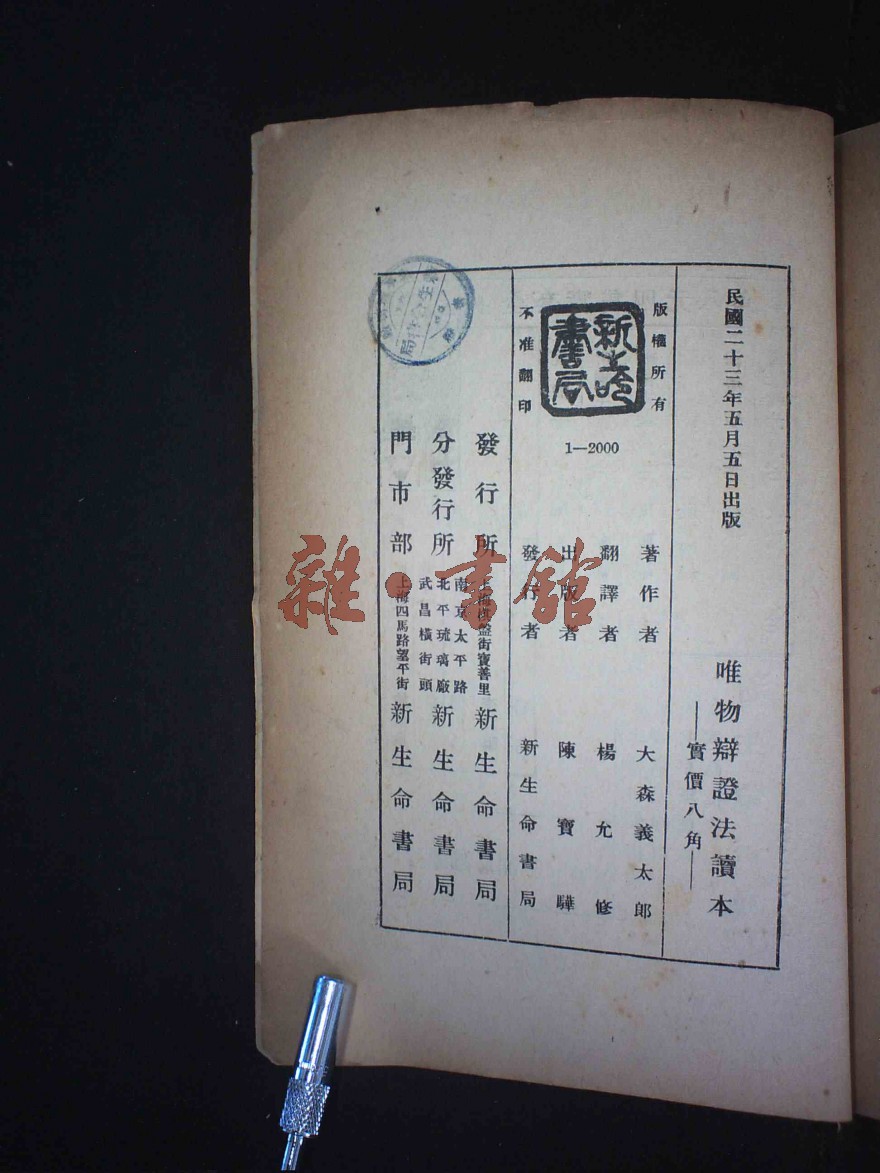 民國二十三年五月五日出版
唯物辯證法讀本
—實價八角—
版權所有
新生命書局
不准翻印
1—2000
著作者 大森義太郎
翻譯者 楊允修
出版者 陳寶驊
發行者 新生命書局
發行所 上海棋盤街寶善里 新生命書局
分發行所 南京太平路 北平琉璃廠 武昌橫街頭 新生命書局
門市部 上海四馬路望平街 新生命書局
雜·書館